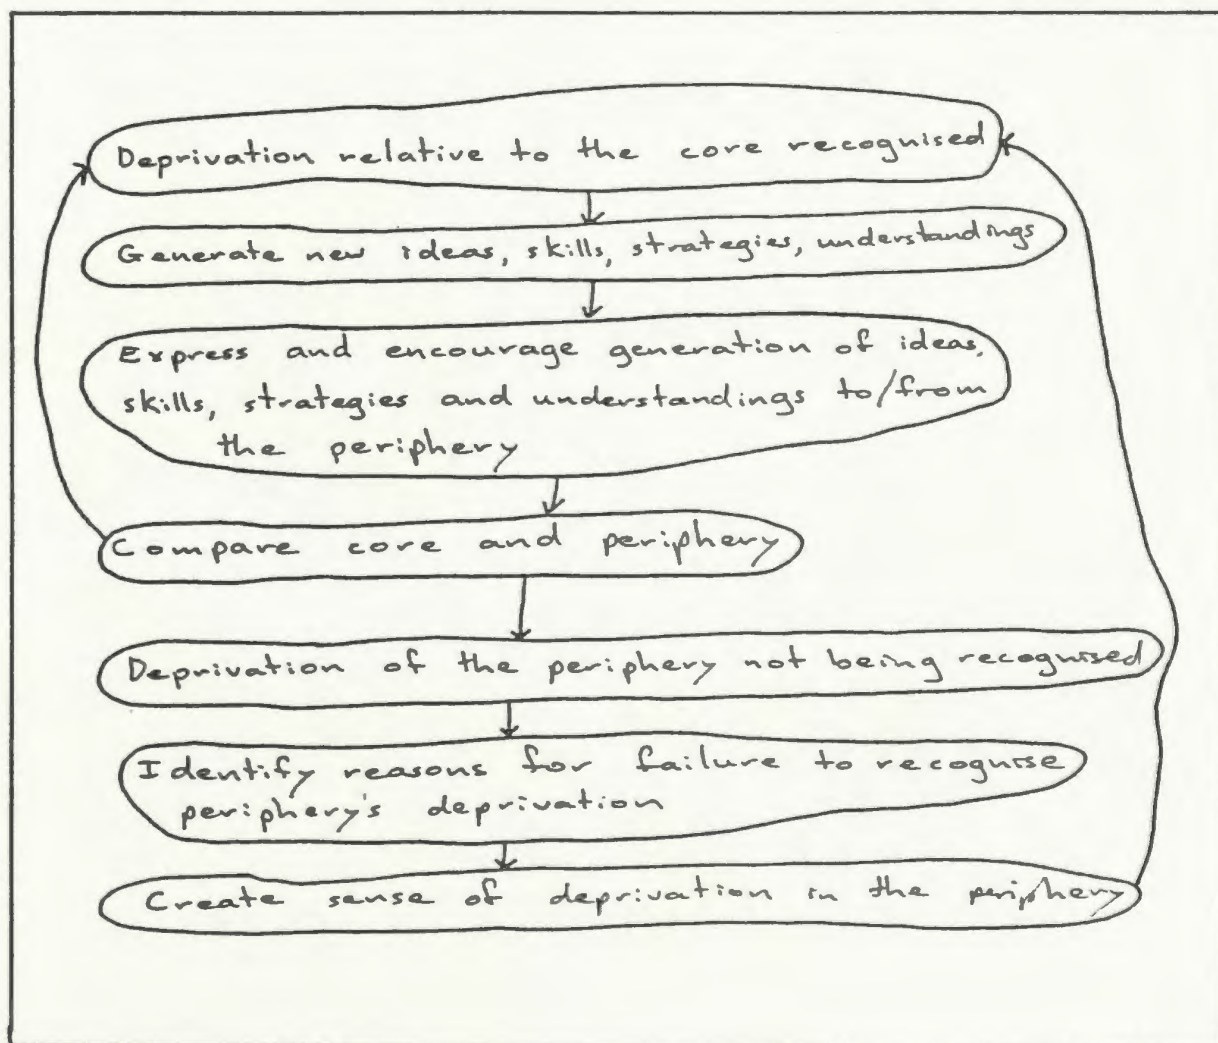 Deprivation relative to the core recognised
Generate new ideas, skills, strategies, understandings
Express and encourage generation of ideas,
skills, strategies and understandings to/from
the periphery
Compare core and periphery
Deprivation of the periphery not being recognised
Identify reasons for failure to recognise
periphery's deprivation
Create sense of deprivation in the periphery